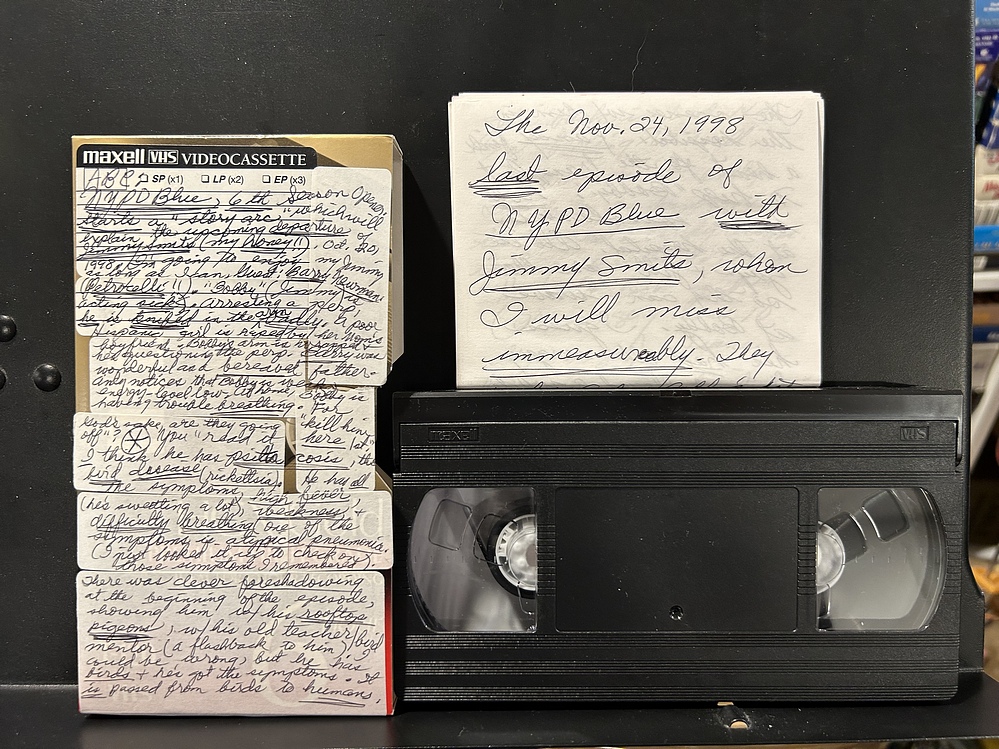 maxell VHS VIDEOCASSETTE
ABC, SP (x1) LP (x2) EP (x3)
NYPD Blue, 6th Season Opener,
starts a "story arc" which will
explain the upcoming departure of
Jimmy Smits (my honey!). Oct. 20,
1998. I'm going to enjoy my Jimmy
as long as I can. Guest: Barry Newman
("Petrocelli"!). "Bobby" (Jimmy) is
acting sick. Arresting a perp,
he is knifed in the arm. A poor
Hispanic girl is raped by her Mom's
boyfriend. Bobby's arm is
he's questioning the perp. Barry was
wonderful and bereaved father.
Andy notices that Bobby is weak,
energy-level low. At home, Bobby is
having trouble breathing. For
God's sake, are they going "kill him
off"? You "read it here 1st"
I think he has psittacosis, the
bird disease (rickettsia). He has all
the symptoms, high fever
(he's sweating a lot), weakness, +
difficulty breathing (one of the
symptoms is atypical pneumonia.
(I just looked it up to check on
those symptoms I remembered).
There was clever foreshadowing
at the beginning of the episode,
showing him w/his rooftop
pigeons, w/his old teacher/bird
mentor (a flashback to him). I
could be wrong, but he has
birds + he's got the symptoms. It
is passed from birds to humans.
The Nov. 24, 1998
last episode of
NYPD Blue with
Jimmy Smits, whom
I will miss
immeasurably. They
maxell
VHS